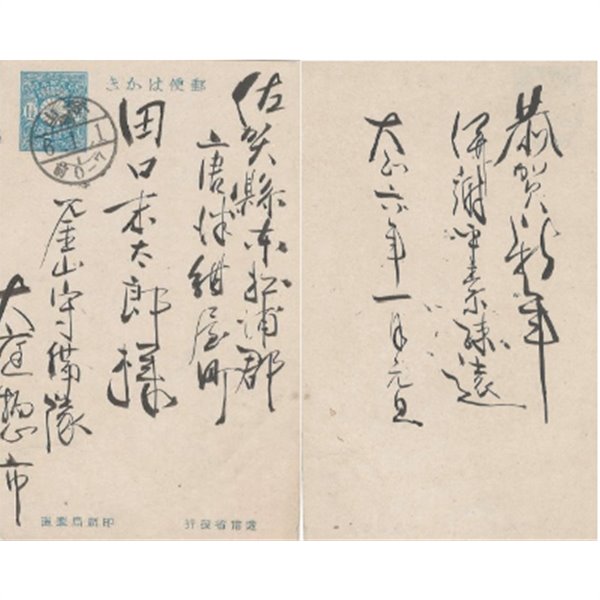 郵便はかき
佐賀縣東松浦郡
唐津紺屋町
田口末太郎様
釜山守備隊
大庭惣市
逓信省發行
印刷局製造
恭賀新年
併謝平素疎遠
大正六年一月元旦